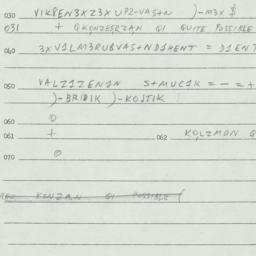 030 VIKPEN3XZ3XUPZ-VAS+N )-M3X $
031 + QKONZESKZAN QI QUITE POSSIBLE
040 3XV1LM3RUBVAS+NDIHENT = DIENT
050 VALZIZENIN S+MUCIK = - = +
)-BRIBIK )-KOSTIK
060 O
061 + 062 KOLZMAN Q
070 O
KONZAN QI POSSIBLE (